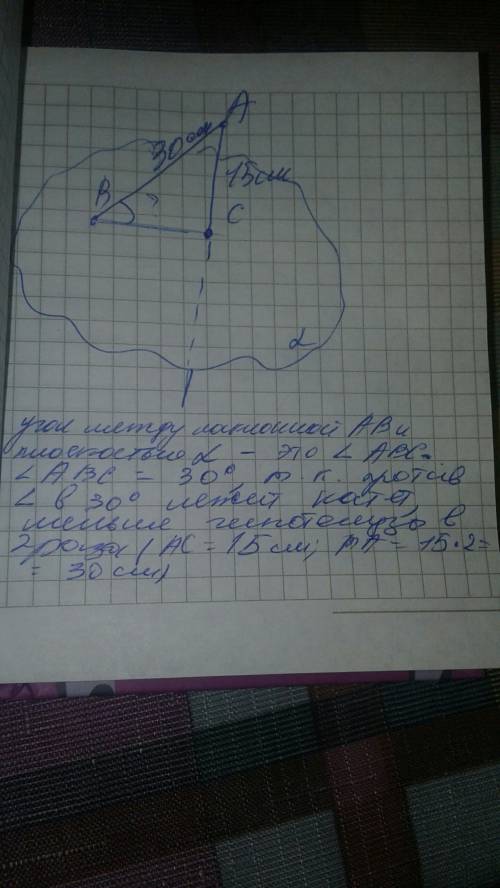 A
30 см
15 см
B
?
C
α
угол между наклонной AB и
плоскостью α - это ∠ ABC.
∠ ABC = 30°, т.к. против
∠ в 30° лежит катет,
меньше гипотенузы в
2 раза (AC = 15 см; BA = 15·2=
= 30 см)